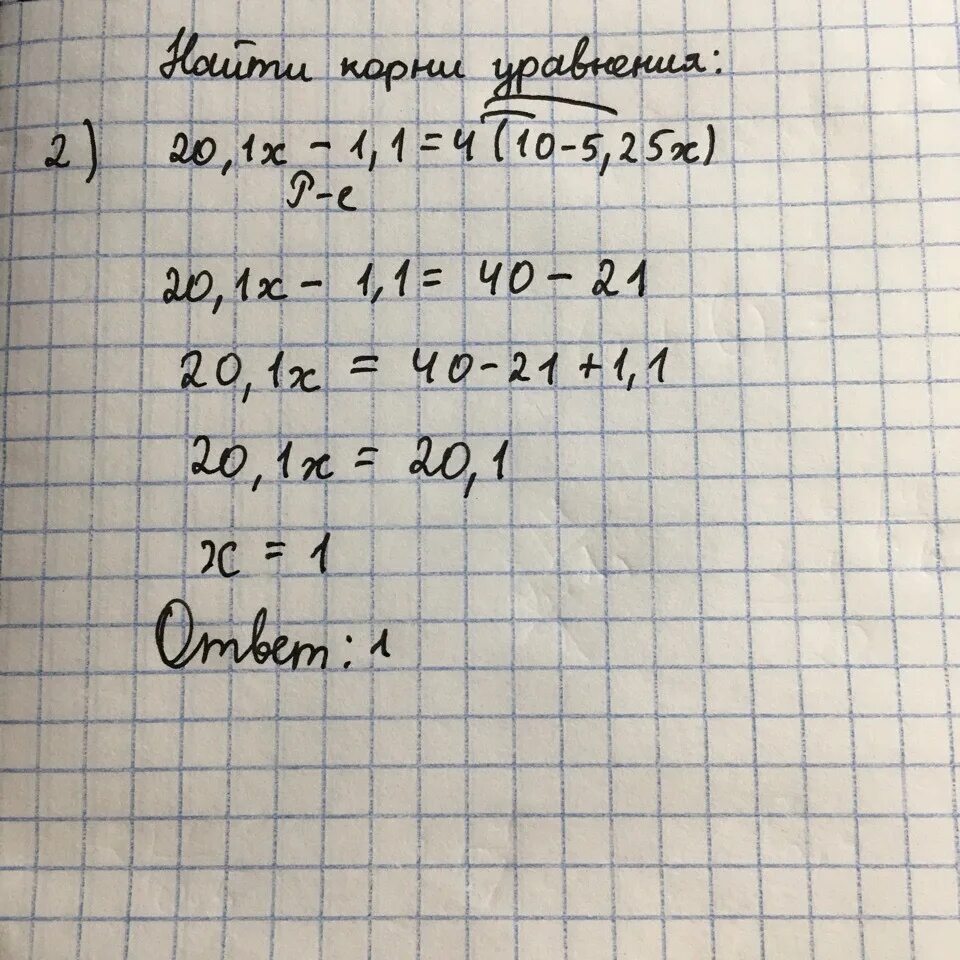 Найти корни уравнения:
2) 20,1x - 1,1 = 4(10-5,25x)
Р-е
20,1x - 1,1 = 40 - 21
20,1x = 40-21+1,1
20,1x = 20,1
x = 1
Ответ: 1